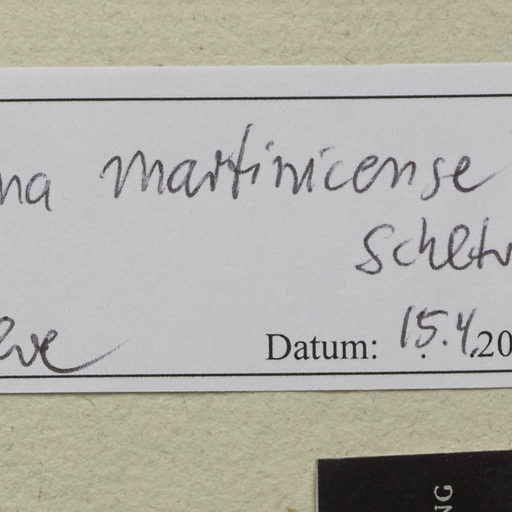 na martinicense
Schltr
Datum: 15.4.20
NG